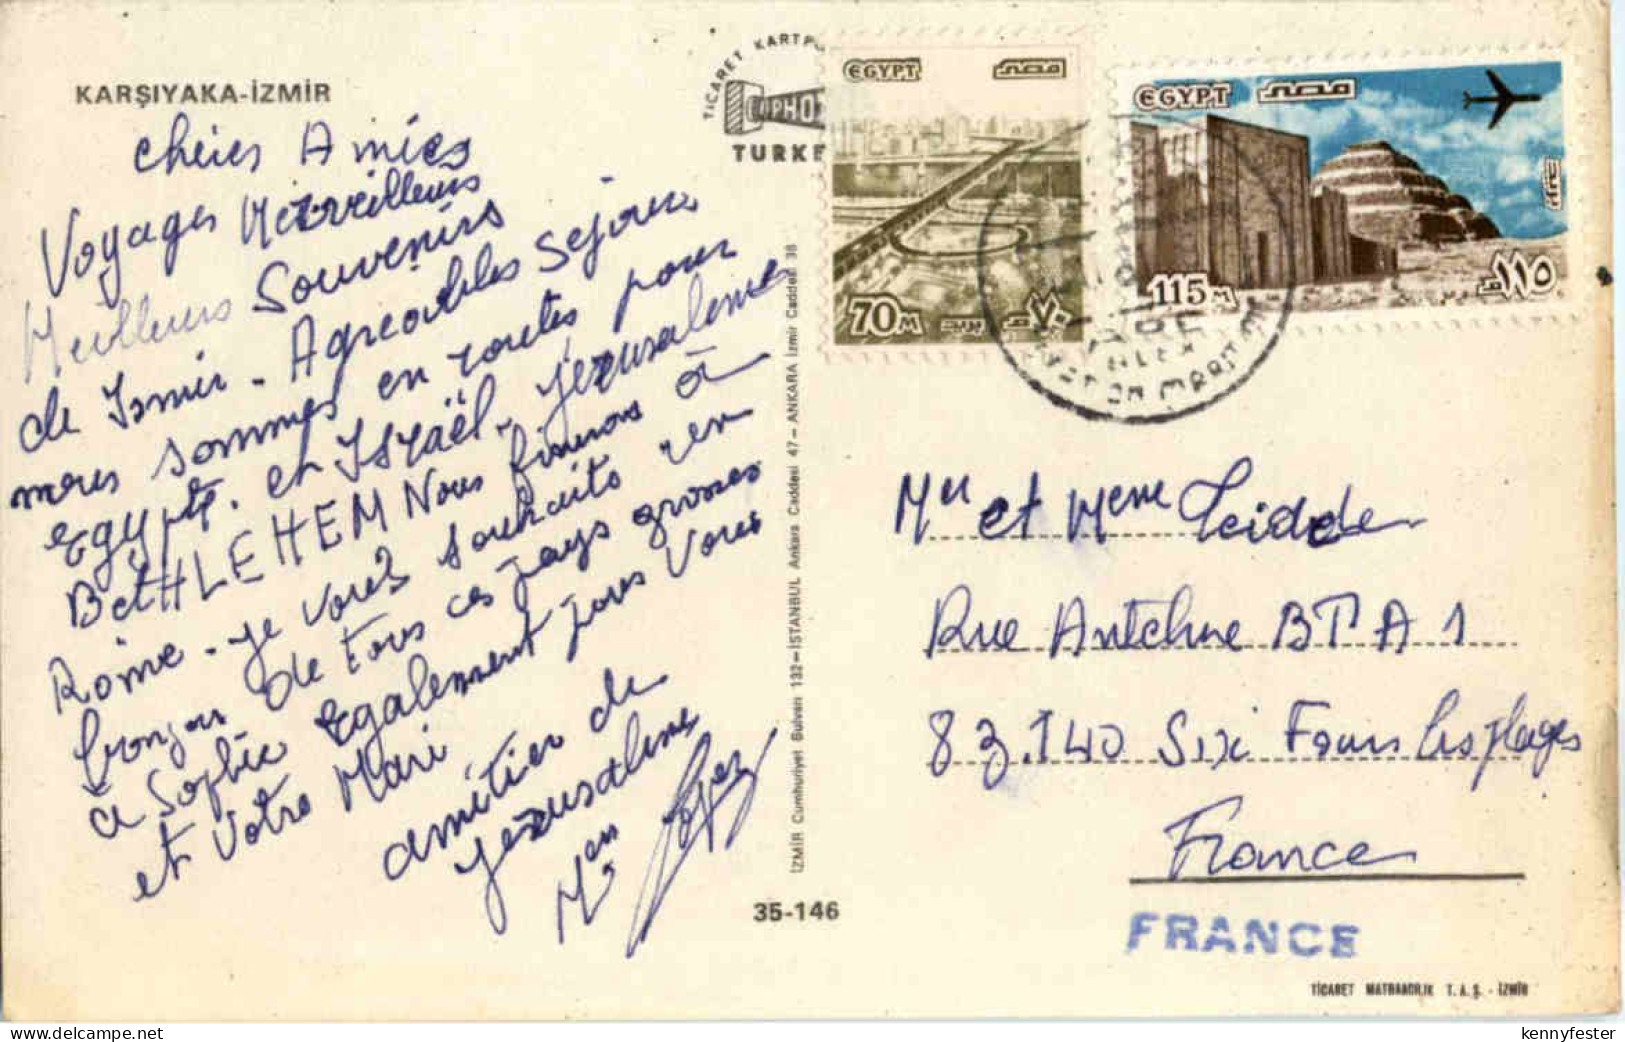 KARŞIYAKA-İZMİR
chères Amies
Voyages Merveilleux
Meilleurs Souvenirs
de Izmir - Agreables Sejours
nous sommes en routes pour
Egypte. et Israël - Jerusaleme
BetHLEHEM Nous finirons à
Rome - je vous souhaite
de tous ces pays grosses
a Sophie Egalement pour Vous
et Votre Mari
amitier de
Jerusaleme
TİCARET KARTPO
TURKE
EGYPT
مصر
70M
٧٠
بريد
EGYPT
مصر
115M
١١٥
İZMİR Cumhuriyet Bulvarı 132-İSTANBUL Ankara Caddesi 47-ANKARA İzmir Caddesi 38
35-146
Mr et Meme
Rue BT A 1
83.140 Six Fours les plages
France
FRANCE
TİCARET MATBAACILIK T.A.Ş. - İZMİR
kennyfester